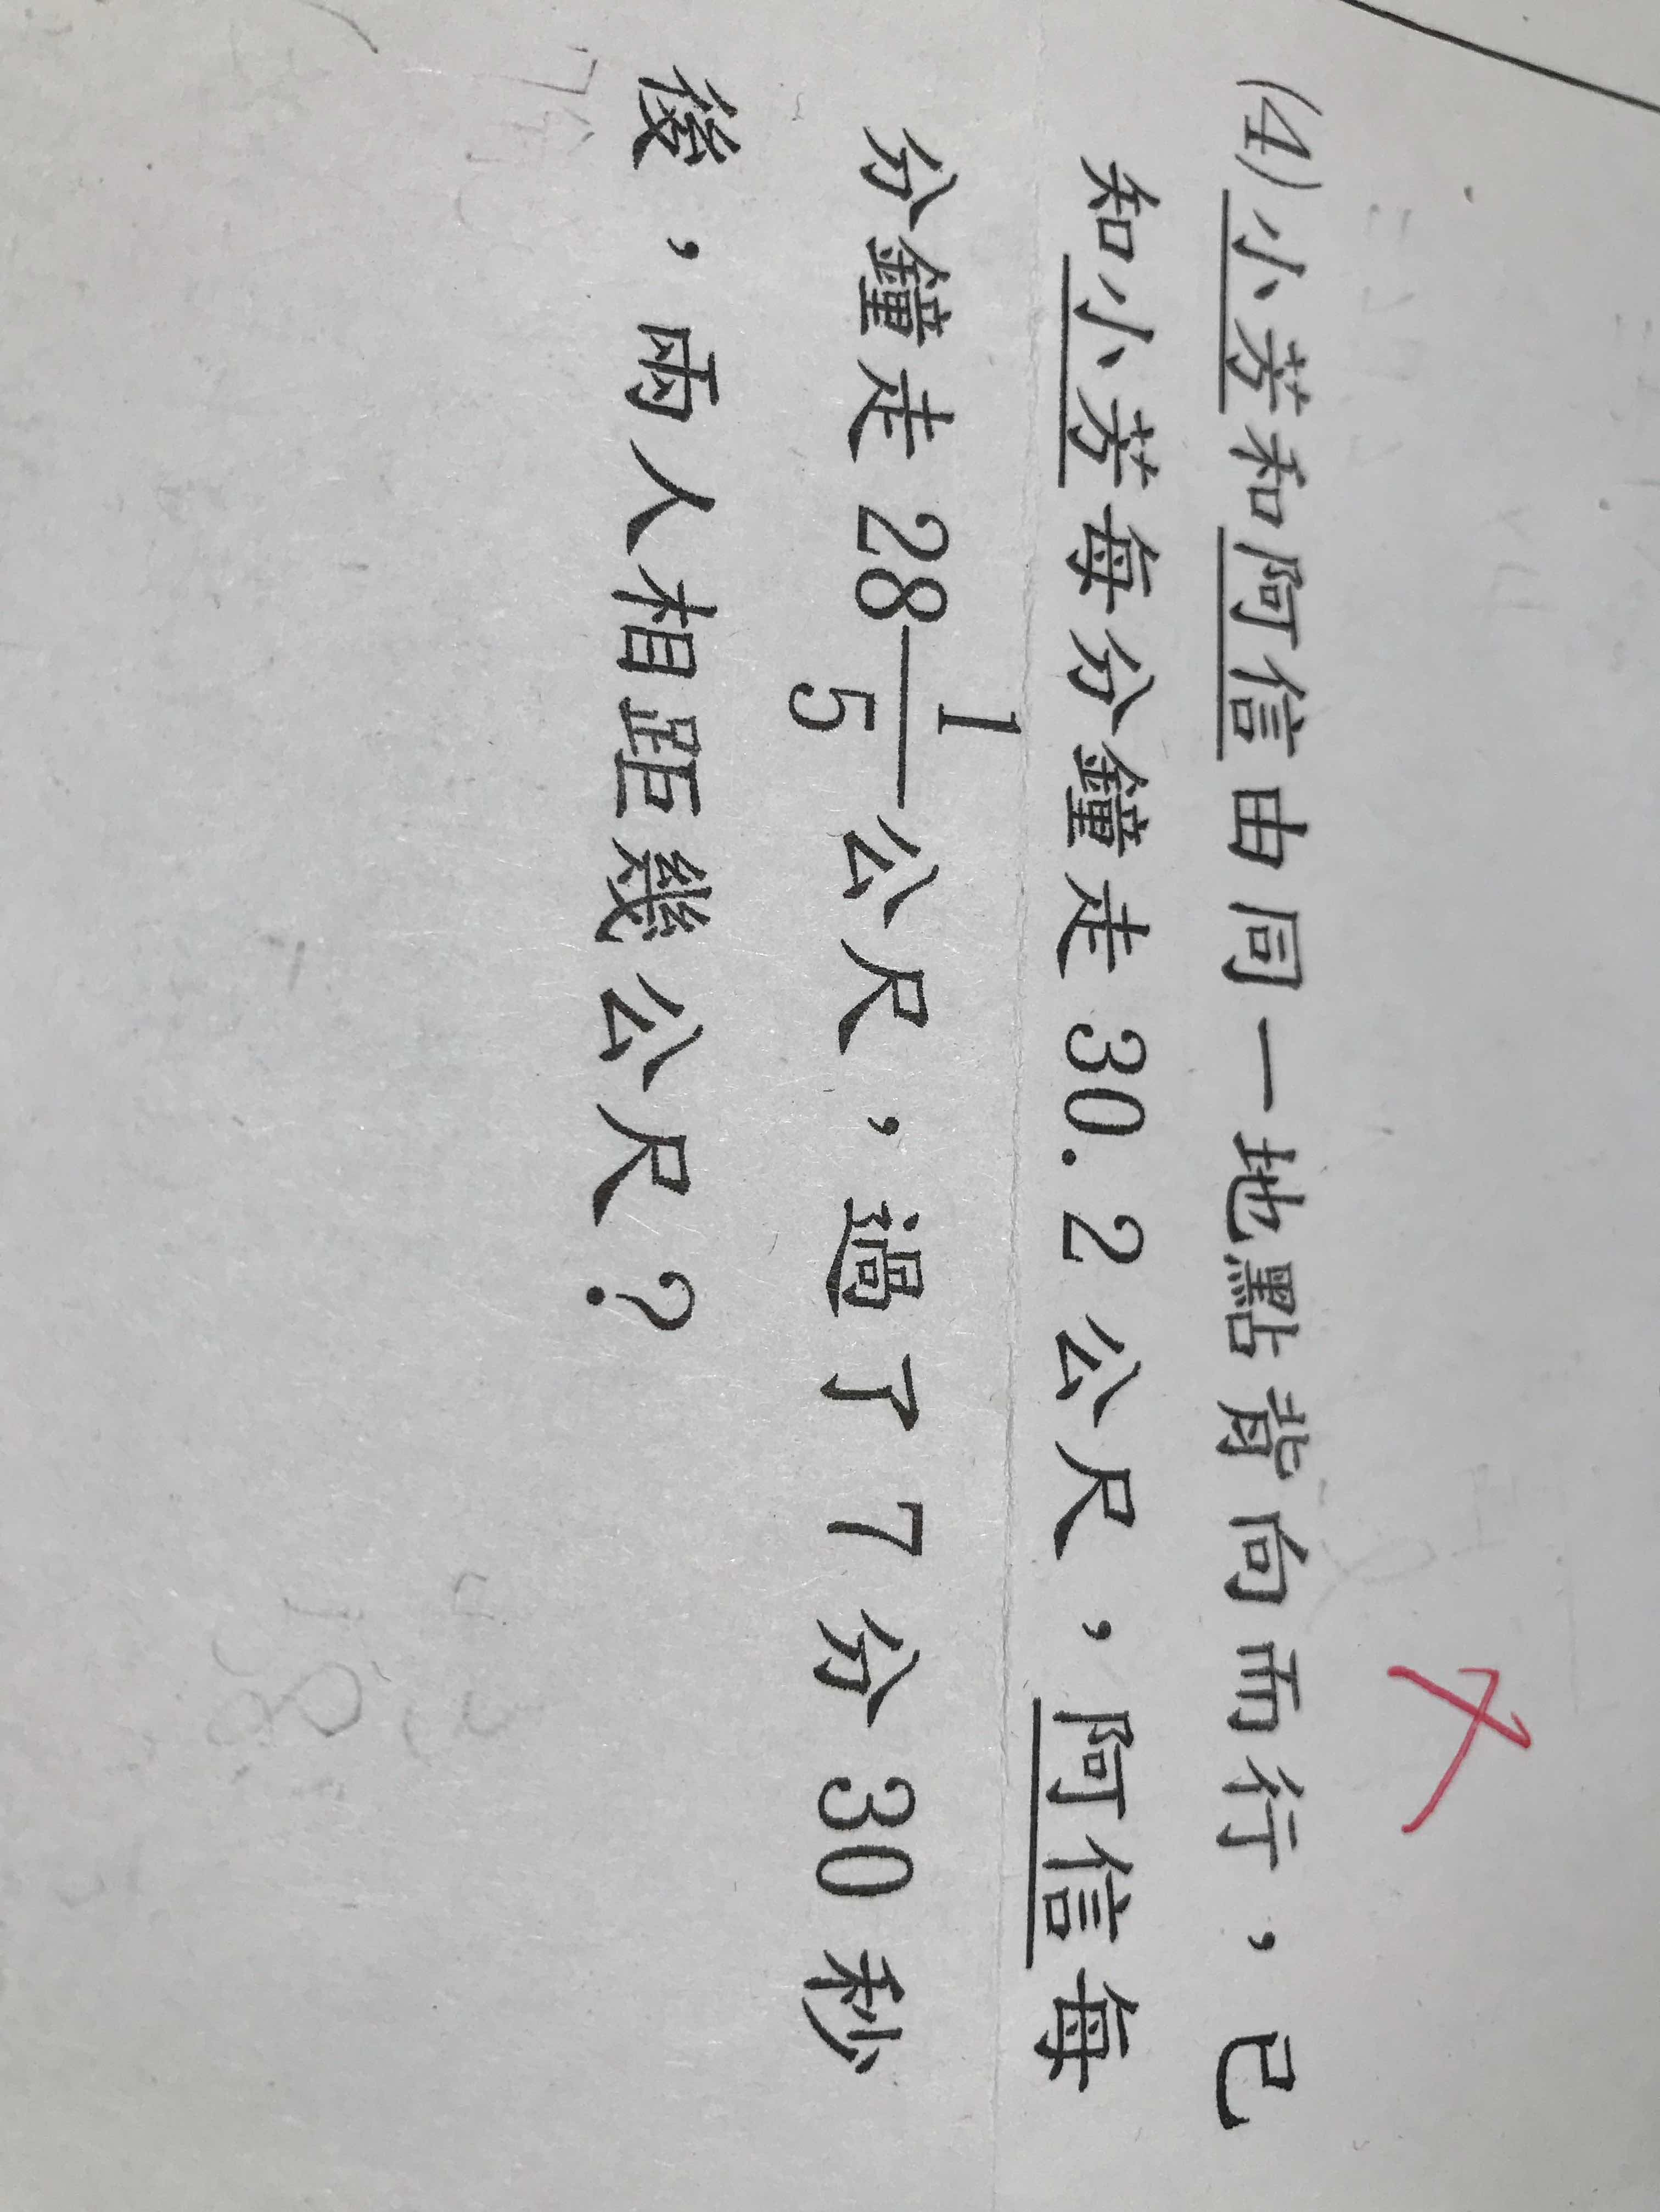 (4)小芳和阿信由同一地點背向而行，已
知小芳每分鐘走30.2公尺，阿信每
分鐘走28 1/5 公尺，過了7分30秒
後，兩人相距幾公尺？